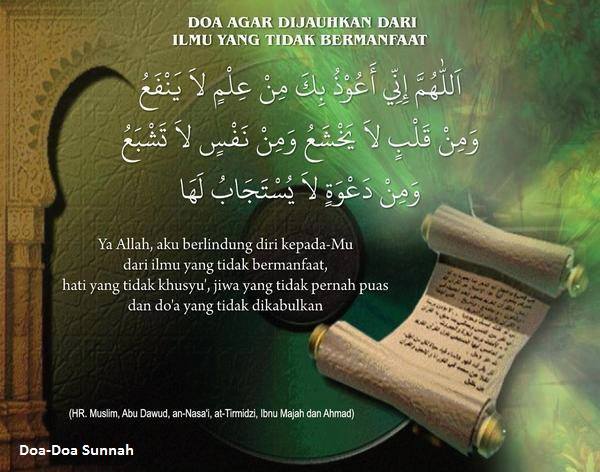 DOA AGAR DIJAUHKAN DARI
ILMU YANG TIDAK BERMANFAAT
اَللّٰهُمَّ إِنِّي أَعُوْذُ بِكَ مِنْ عِلْمٍ لاَ يَنْفَعُ
وَمِنْ قَلْبٍ لاَ يَخْشَعُ وَمِنْ نَفْسٍ لاَ تَشْبَعُ
وَمِنْ دَعْوَةٍ لاَ يُسْتَجَابُ لَهَا
Ya Allah, aku berlindung diri kepada-Mu
dari ilmu yang tidak bermanfaat,
hati yang tidak khusyu', jiwa yang tidak pernah puas
dan do'a yang tidak dikabulkan
(HR. Muslim, Abu Dawud, an-Nasa'i, at-Tirmidzi, Ibnu Majah dan Ahmad)
Doa-Doa Sunnah